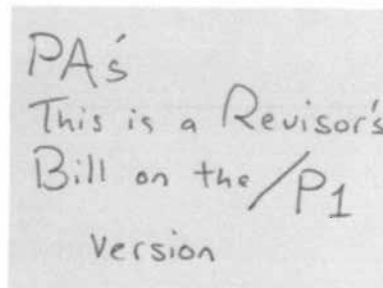 PA's
This is a Revisor's
Bill on the /P1
version